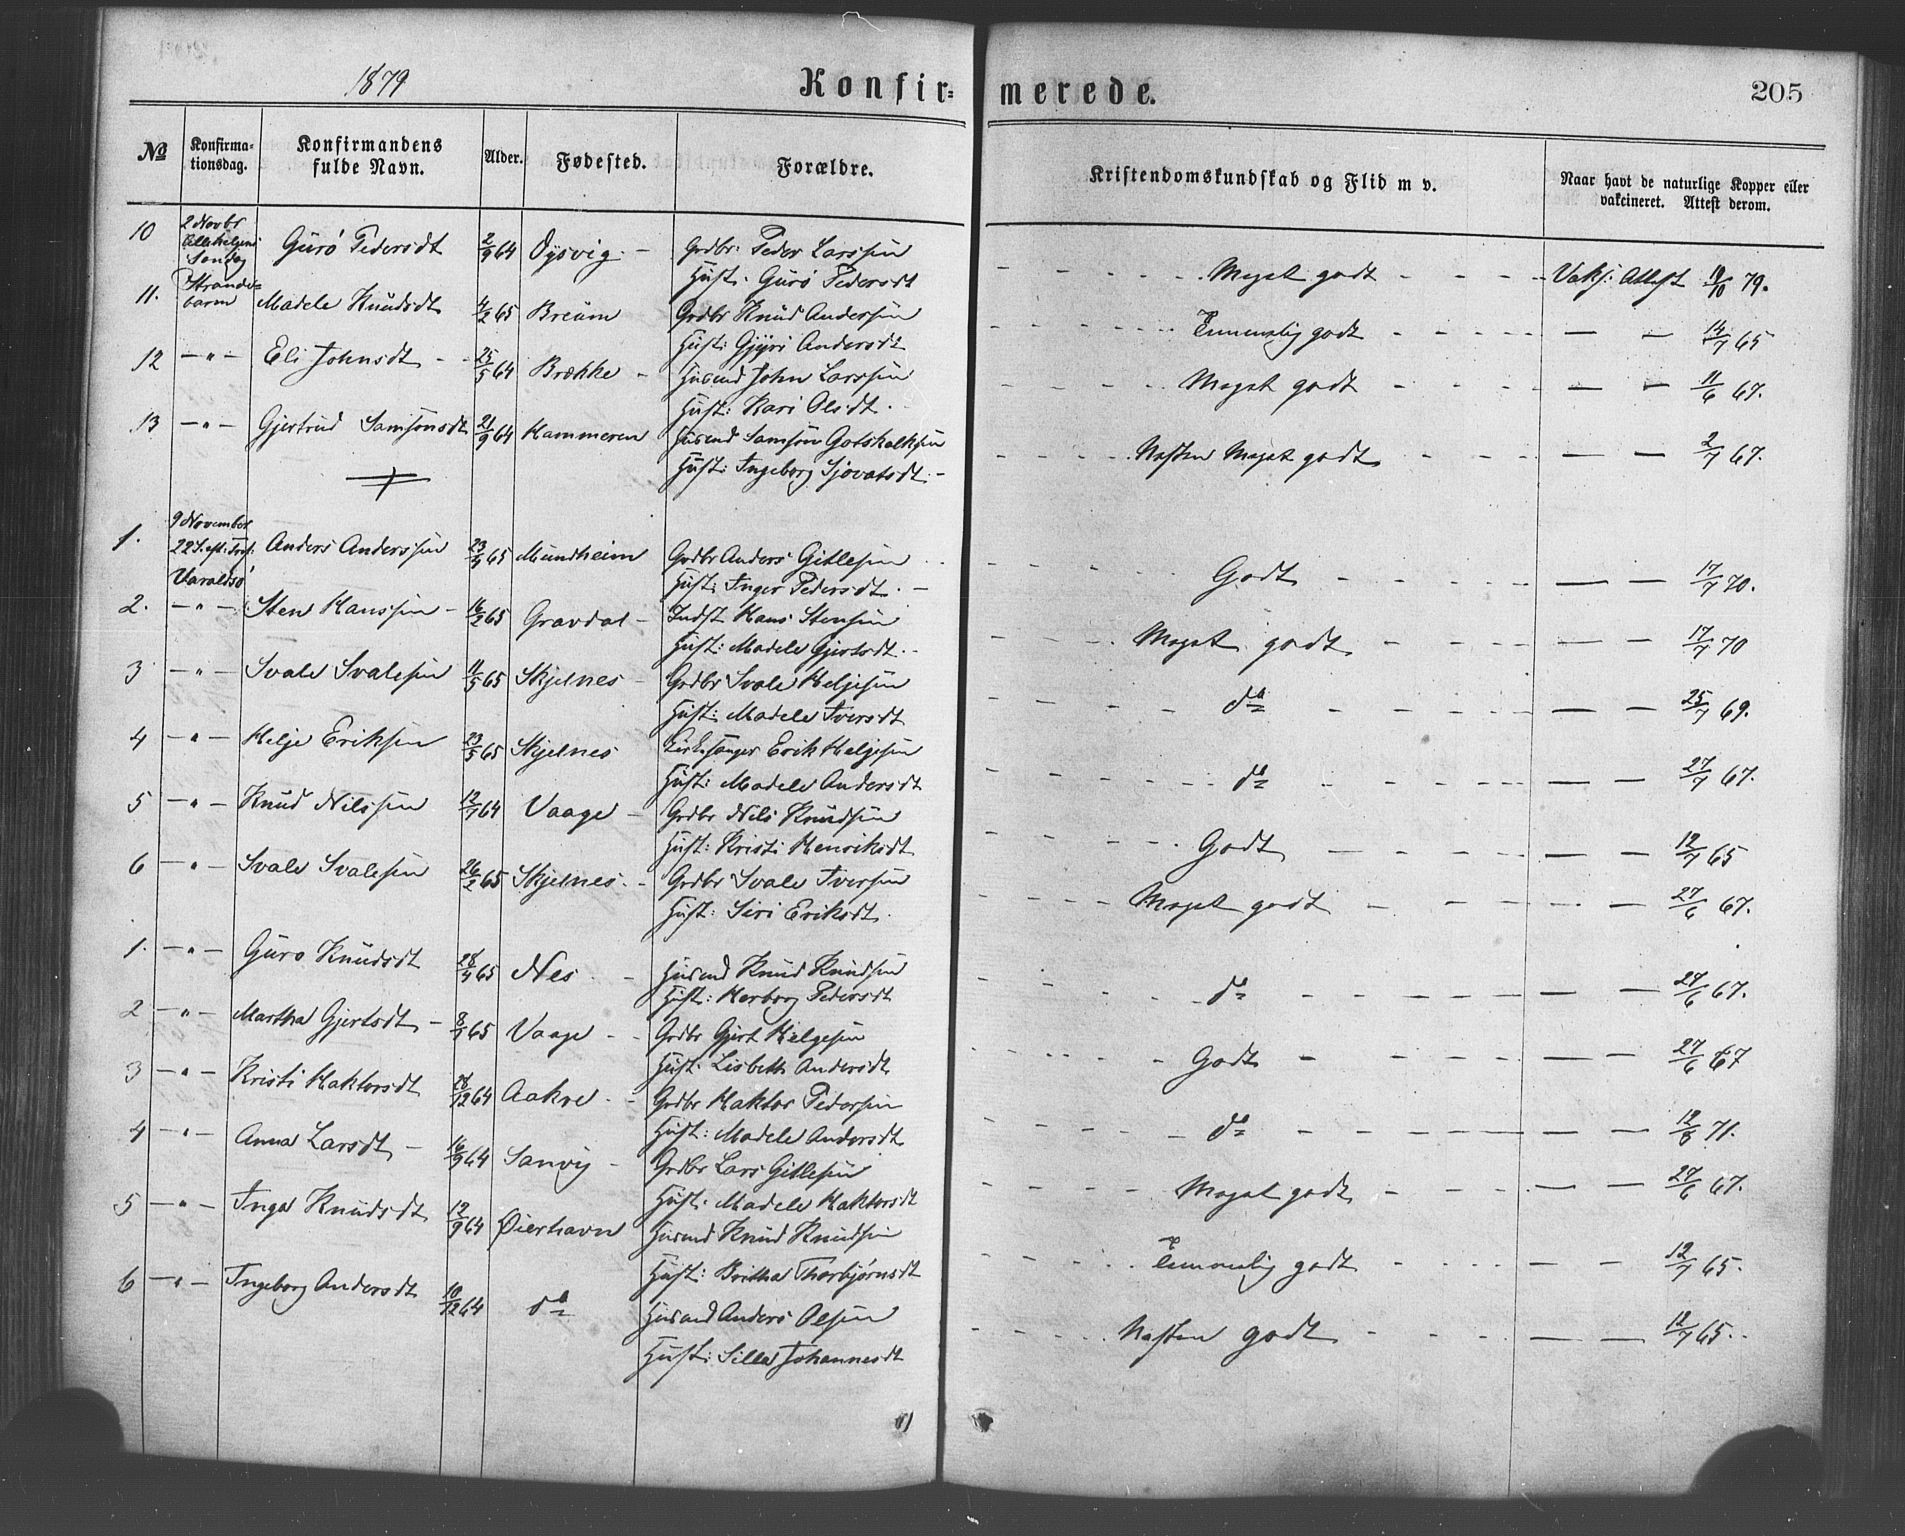 1879 Konfirmerede. 205
№ Konfirmationsdag. Konfirmandens fulde Navn. Alder. Fødested. Forældre. Kristendomskundskab og Flid m v. Naar havt de naturlige Kopper eller vakcineret. Attest derom.
10 2 Novbr Allehelgens Søndag Strandebarm Guro Pedersdt 2/9 64 Oysvig - Grdbr: Peder Larssen
Hust. Guro Pedersdt Meget godt Vaks: Attest 19/10 79.
11. Madele Knudsdt 4/2 65 Breum Grdbr Knud Andersen
Hust: Gjyri Andersdt Temmelig godt — — 14/7 65
12 — " — Eli Johnsdt - 25/5 64 Brekke - Husmd John Larssen
Hust: Kari Olsdt. Meget godt — — 11/6 67.
13 — " — Gjertrud Samsonsdt 21/9 64 Kammeren Husmd Samson Gotskalksen
Hust: Ingeborg Sjovatsdt - Næsten Meget godt — — 2/7 67.
1. 9 November 22 S. eft: Tref: Varaldsö Anders Anderssen 23/4 65 Mundheim Grdbr Anders Gitlesen
Hust: Inger Pedersdt. - Godt — — 17/7 70.
2. — " — Sten Hanssen - 16/2 65 Gravdal - Indst Hans Stensen
Hust: Madele Gjertsdt. Meget godt — — 17/7 70
3 — " — Svale Svalesen 11/5 65 Skjelnes - Grdbr Svale Helgesen
Hust: Madele Iversdt do — — 25/7 69.
4 — " — Helje Eriksen 23/5 65 Skjelnes Kirkesanger Erik Helgesen
Hust: Madele Andersdt do — — 27/7 67.
5 — " — Knud Nilssen 12/7 64 Vaage - Grdbr Nils Knudsen
Hust: Kristi Henriksdt Godt — — 12/7 65
6 — " — Svale Svalesen 26/2 65 Skjelnes. - Grdbr Svale Iversen
Hust: Siri Eriksdt. Meget godt — — 27/6 67.
1. — " — Guro Knudsdt 28/4 65 Nes. - Husmd Knud Knudsen
Hust: Herborg Pedersdt do — — 27/6 67.
2 — " — Martha Gjertsdt - 8/1 65 Vaage - Grdbr Gjert Helgesen
Hust. Lisbeth Andersdt Godt — — 27/6 67
3 — " — Kristi Haktorsdt 28/12 64 Aakre. - Grdbr Haktor Pedersen
Hust: Madele Andersdt do — — 12/8 71.
4 — " — Anna Larsdt - 16/9 64 Sanvig - Grdbr Lars Gitlesen
Hust. Madele Haktorsdt Meget godt — — 27/6 67.
5 — " — Inga Knudsdt 12/9 64 Øierhavn Husmd Knud Knudsen
Hust: Britha Thorbjørnsdt Temmelig godt — — 12/7 65.
6 — " — Ingeborg Andersdt 10/12 64 do Husmd Anders Olsen
Hust: Silla Johannesdt Næsten godt — — 12/7 65.